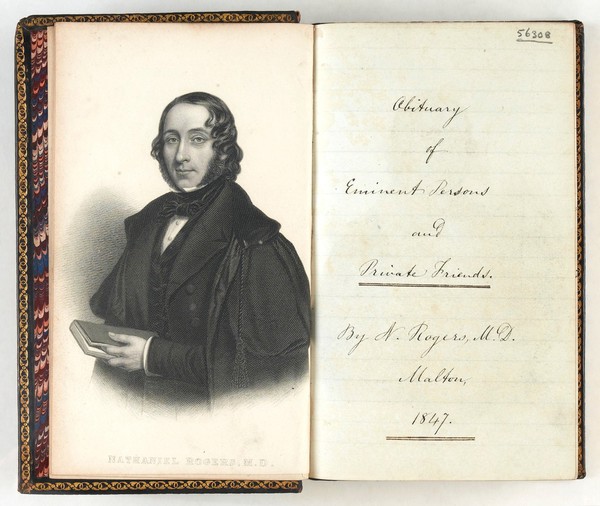 NATHANIEL ROGERS, M.D.
56308
Obituary
of
Eminent Persons
and
Private Friends.
By N. Rogers, M.D.
Malton,
1847.